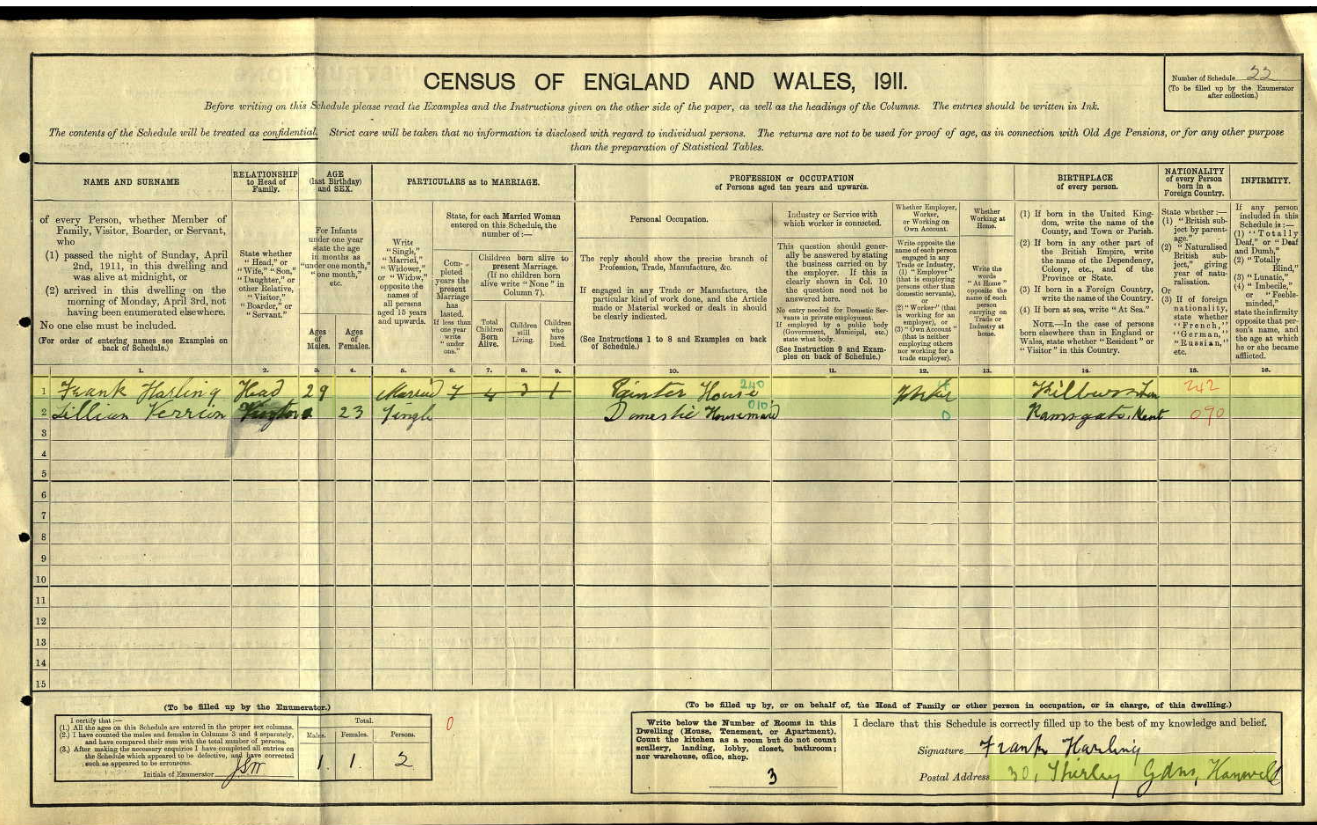 CENSUS OF ENGLAND AND WALES, 1911.
Number of Schedule 22
(To be filled up by the Enumerator
after collection.)
Before writing on this Schedule please read the Examples and the Instructions given on the other side of the paper, as well as the headings of the Columns. The entries should be written in Ink.
The contents of the Schedule will be treated as confidential. Strict care will be taken that no information is disclosed with regard to individual persons. The returns are not to be used for proof of age, as in connection with Old Age Pensions, or for any other purpose
than the preparation of Statistical Tables.
NAME AND SURNAME
of every Person, whether Member of
Family, Visitor, Boarder, or Servant,
who
(1) passed the night of Sunday, April
2nd, 1911, in this dwelling and
was alive at midnight, or
(2) arrived in this dwelling on the
morning of Monday, April 3rd, not
having been enumerated elsewhere.
No one else must be included.
(For order of entering names see Examples on
back of Schedule.)
RELATIONSHIP
to Head of
Family.
State whether
"Head," or
"Wife," "Son,"
"Daughter," or
other Relative,
"Visitor,"
"Boarder," or
"Servant."
AGE
(last Birthday)
and SEX.
For Infants
under one year
state the age
in months as
"under one month,"
"one month,"
etc.
Ages
of
Males.
Ages
of
Females.
PARTICULARS as to MARRIAGE.
Write
"Single,"
"Married,"
"Widower,"
or "Widow,"
opposite the
names of
all persons
aged 15 years
and upwards.
State, for each Married Woman
entered on this Schedule, the
number of:—
Com-
pleted
years the
present
Marriage
has
lasted.
If less than
one year
write
"under
one."
Children born alive to
present Marriage.
(If no children born
alive write "None" in
Column 7).
Total
Children
Born
Alive.
Children
still
Living.
Children
who
have
Died.
PROFESSION or OCCUPATION
of Persons aged ten years and upwards.
Personal Occupation.
The reply should show the precise branch of
Profession, Trade, Manufacture, &c.
If engaged in any Trade or Manufacture, the
particular kind of work done, and the Article
made or Material worked or dealt in should
be clearly indicated.
(See Instructions 1 to 8 and Examples on back
of Schedule.)
Industry or Service with
which worker is connected.
This question should gener-
ally be answered by stating
the business carried on by
the employer. If this is
clearly shown in Col. 10
the question need not be
answered here.
No entry needed for Domestic Ser-
vants in private employment.
If employed by a public body
(Government, Municipal, etc.)
state what body.
(See Instruction 9 and Exam-
ples on back of Schedule.)
Whether Employer,
Worker,
or Working on
Own Account.
Write opposite the
name of each person
engaged in any
Trade or Industry,
(1) "Employer"
(that is employing
persons other than
domestic servants),
or
(2) "Worker" (that
is working for an
employer), or
(3) "Own Account"
(that is neither
employing others
nor working for a
trade employer).
Whether
Working at
Home.
Write the
words
"At Home"
opposite the
name of each
person
carrying on
Trade or
Industry at
home.
BIRTHPLACE
of every person.
(1) If born in the United King-
dom, write the name of the
County, and Town or Parish.
(2) If born in any other part of
the British Empire, write
the name of the Dependency,
Colony, etc., and of the
Province or State.
(3) If born in a Foreign Country,
write the name of the Country.
(4) If born at sea, write "At Sea."
NOTE.—In the case of persons
born elsewhere than in England or
Wales, state whether "Resident" or
"Visitor" in this Country.
NATIONALITY
of every Person
born in a
Foreign Country.
State whether:—
(1) "British sub-
ject by parent-
age."
(2) "Naturalised
British
subject," giving
year of natu-
ralisation.
Or
(3) If of foreign
nationality,
state whether
"French,"
"German,"
"Russian,"
etc.
INFIRMITY.
If any person
included in this
Schedule is:—
(1) "Totally
Deaf," or "Deaf
and Dumb,"
(2) "Totally
Blind,"
(3) "Lunatic,"
(4) "Imbecile,"
or "Feeble-
minded,"
state the infirmity
opposite that per-
son's name, and
the age at which
he or she became
afflicted.
1. 2. 3. 4. 5. 6. 7. 8. 9. 10. 11. 12. 13. 14. 15. 16.
1 Frank Harling Head 29 Married 7 4 3 1 Painter House 240 Worker 242
2 Lillian 23 Single Domestic Housemaid 010 0 Ramsgate, Kent 090
3
4
5
6
7
8
9
10
11
12
13
14
15
(To be filled up by the Enumerator.)
I certify that:—
(1.) All the ages on this Schedule are entered in the proper sex columns.
(2.) I have counted the males and females in Columns 3 and 4 separately,
and have compared their sum with the total number of persons.
(3.) After making the necessary enquiries I have completed all entries on
the Schedule which appeared to be defective, and have corrected
such as appeared to be erroneous.
Initials of Enumerator
Total.
Males. Females. Persons.
1. 1. 2
0
(To be filled up by, or on behalf of, the Head of Family or other person in occupation, or in charge, of this dwelling.)
Write below the Number of Rooms in this
Dwelling (House, Tenement, or Apartment).
Count the kitchen as a room but do not count
scullery, landing, lobby, closet, bathroom;
nor warehouse, office, shop.
3
I declare that this Schedule is correctly filled up to the best of my knowledge and belief.
Signature Frank Harling
Postal Address 30, Shirley Gdns, Hanwell